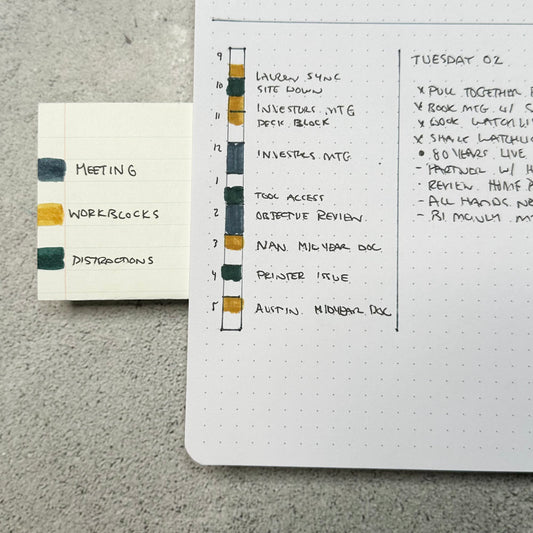 MEETING
WORKBLOCKS
DISTRACTIONS
9
LAUREN SYNC
10 SITE DOWN
INVESTORS MTG
11 DECK BLOCK
12 INVESTORS MTG
1 TOOL ACCESS
2 OBJECTIVE REVIEW
3 NAN. MID YEAR DOC
4 PRINTER ISSUE
5 AUSTIN. MIDYEAR DOC
TUESDAY 02
x PULL TOGETHER
x BOOK MTG W/ S
x BOOK WATCH LI
x SHARE WATCHLI
• 80 YEARS LIVE
- PARTNER W/ H
· REVIEW HOME P
- ALL HANDS NE
- BI MONLY M